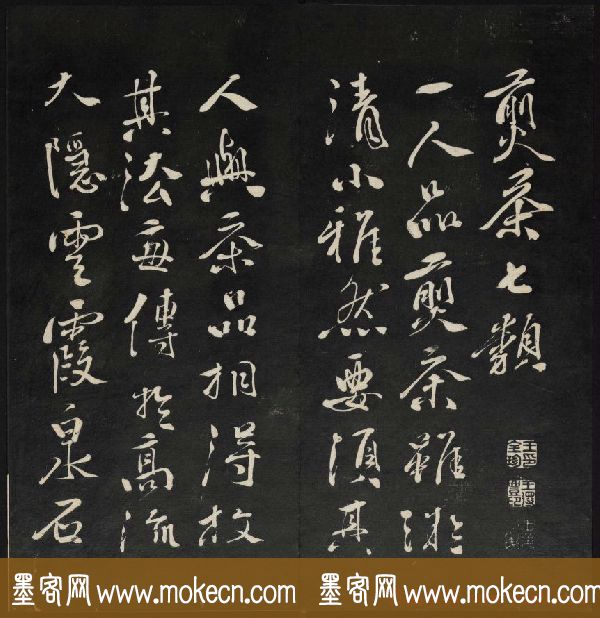 煎茶七類
一人品煎茶雖微
清小雅然要須其
人與茶品相得故
其法每傳於高流
大隱雲霞泉石
墨客网 www.mokecn.com
墨客网 www.mokecn.com